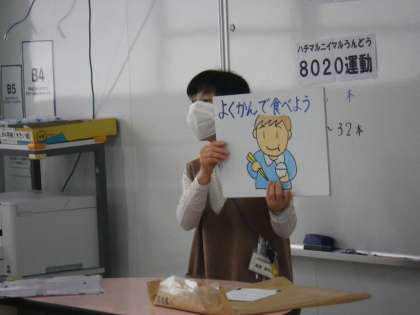 ハチマルニイマルうんどう
8020運動
B4
B5
よくかんで食べよう
本
~32本